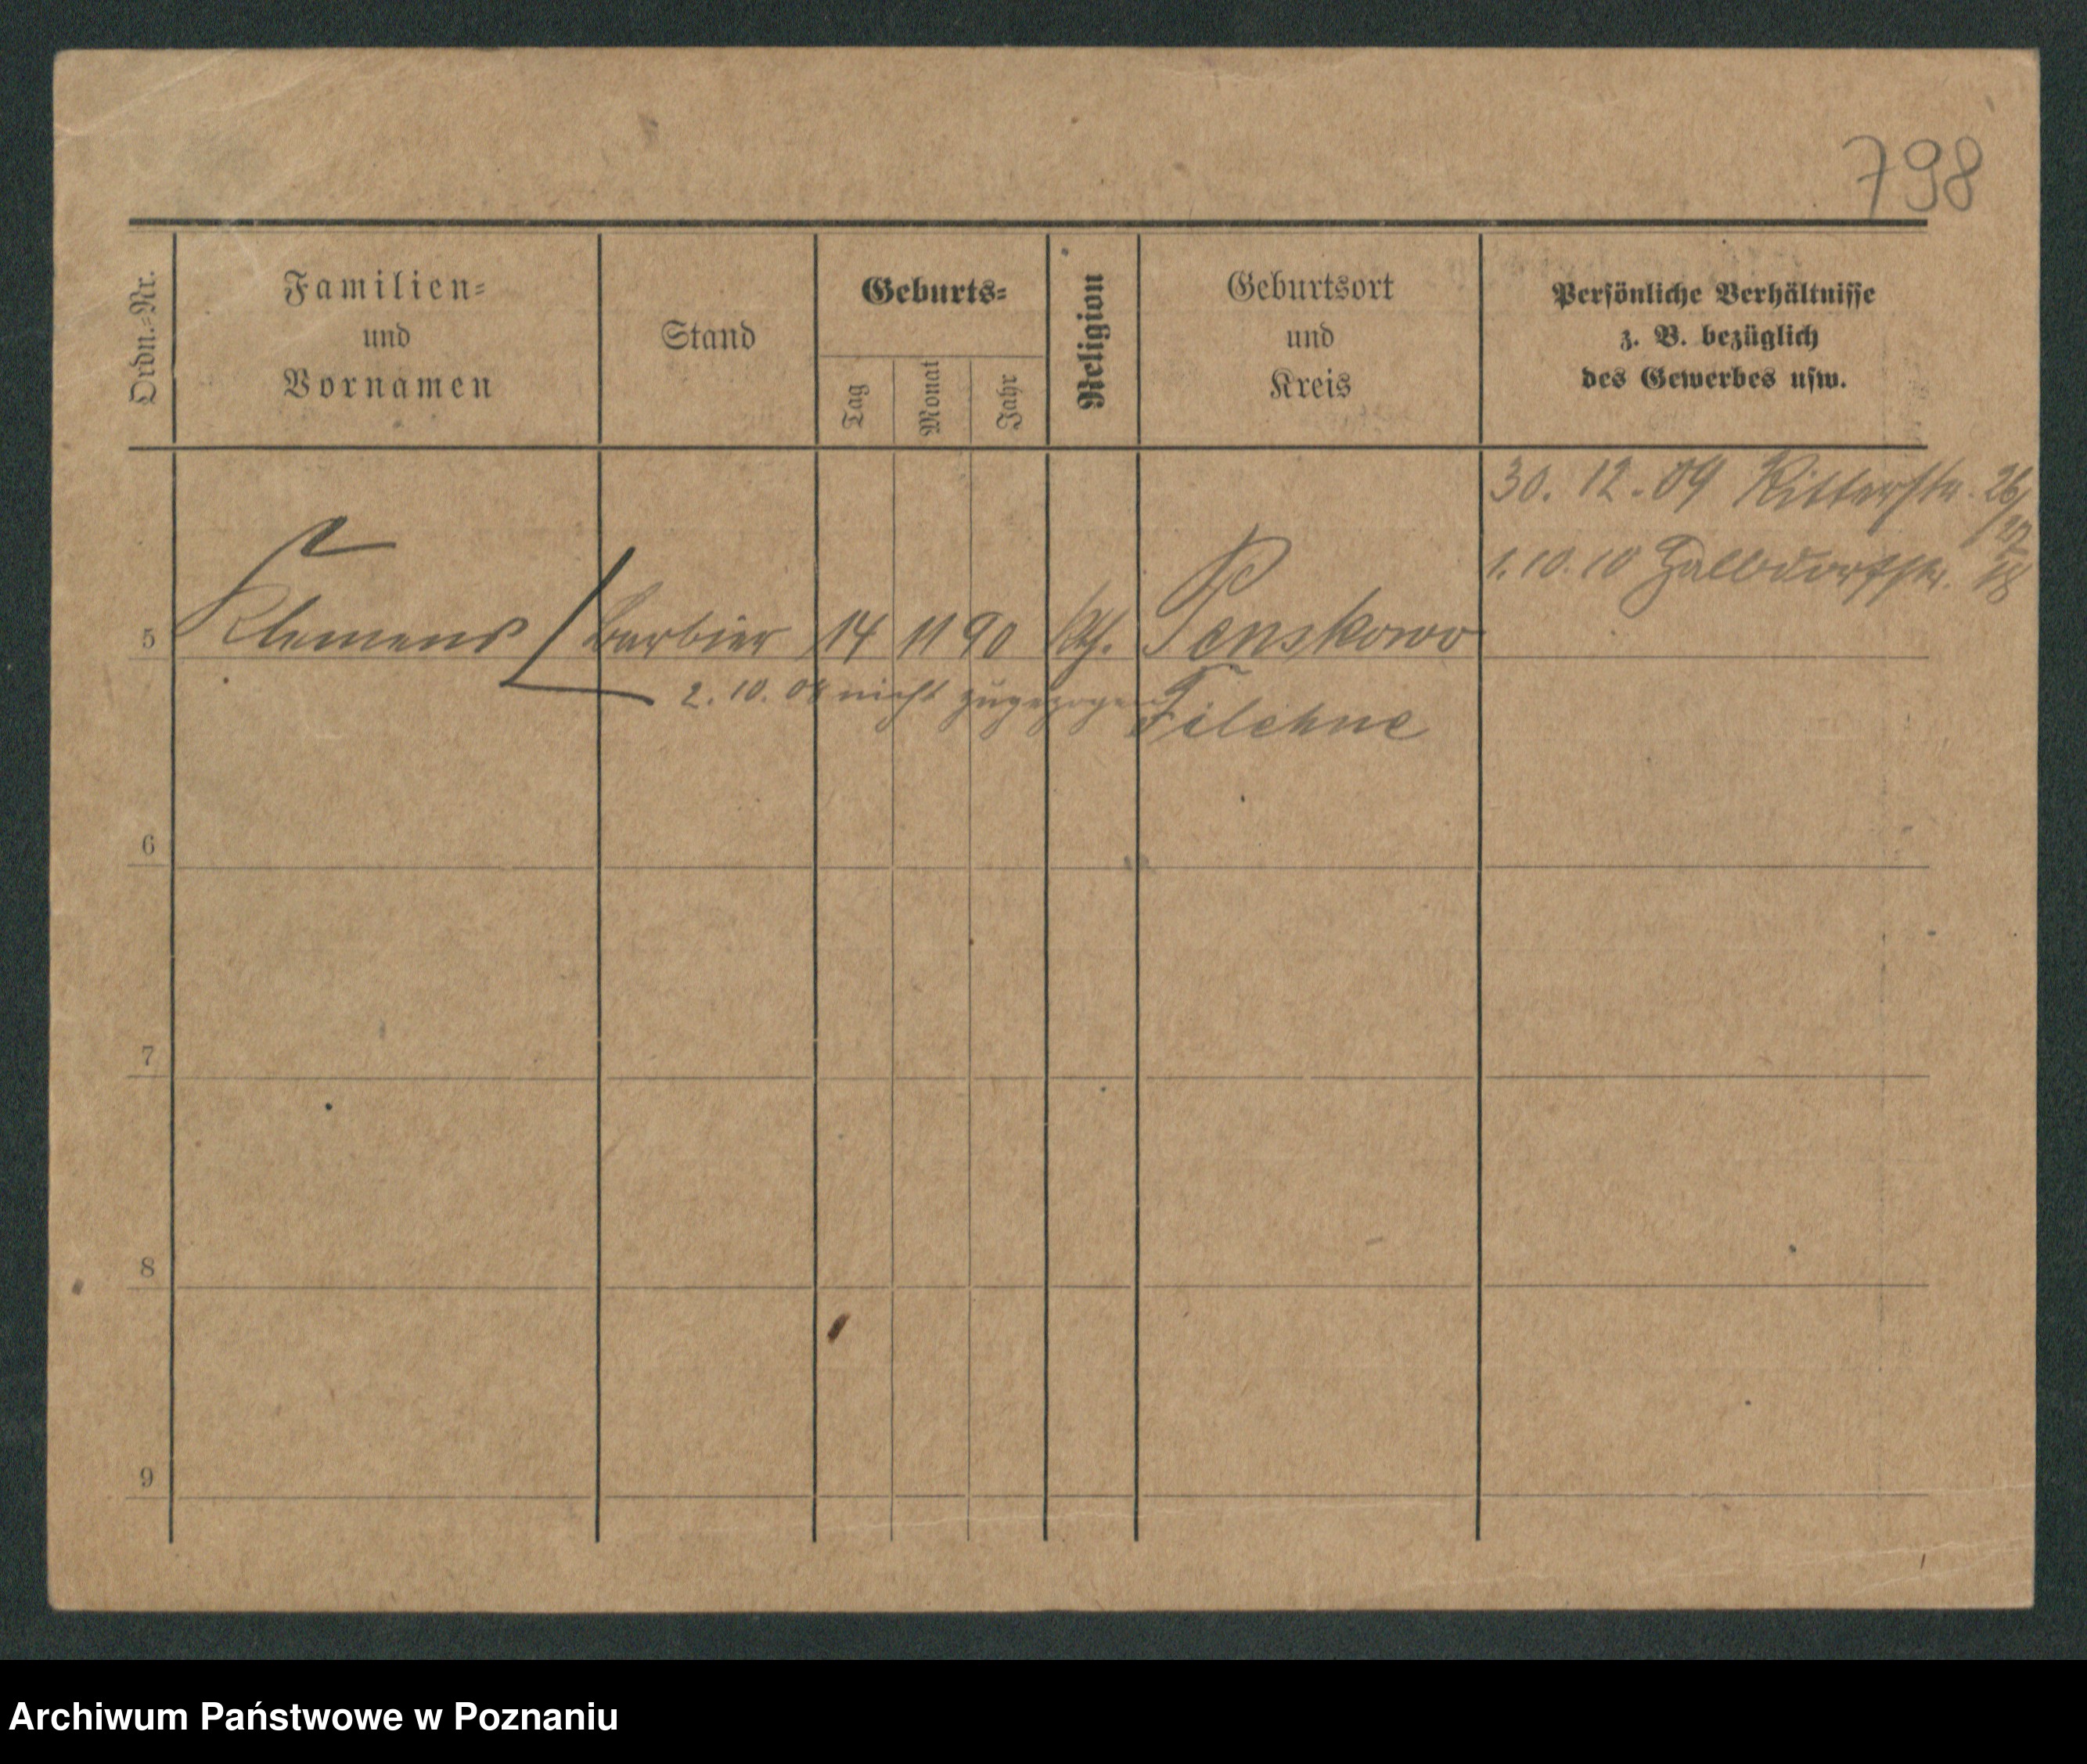 798
Ordn.-Nr.
Familien-
und
Vornamen
Stand
Geburts-
Tag
Monat
Jahr
Religion
Geburtsort
und
Kreis
Persönliche Verhältnisse
z. B. bezüglich
des Gewerbes usw.
30. 12. 09 Ritterstr. 26/
1. 10. 10 Halbdorfstr. 18
5 Klemens Barbier 14 11 90 kth. Penskowo
2. 10. 08 nicht zugezogen
Filehne
6
7
8
9
Archiwum Państwowe w Poznaniu